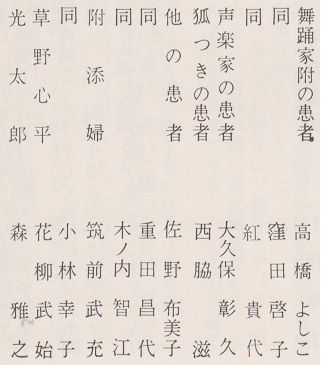 舞踊家附の患者 高橋よしこ
同 窪田啓子
同 紅貴代
声楽家の患者 大久保彰久
狐つきの患者 西脇滋
他の患者 佐野布美子
同 重田昌代
同 木ノ内智江
附添婦 筑前武充
同 小林幸子
草野心平 花柳武始
光太郎 森雅之